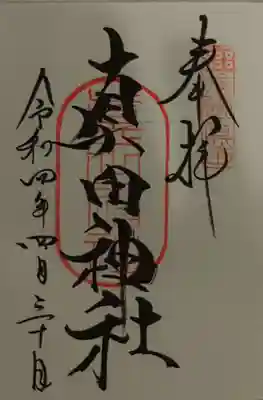 奉拝
真田神社
令和四年四月三十日